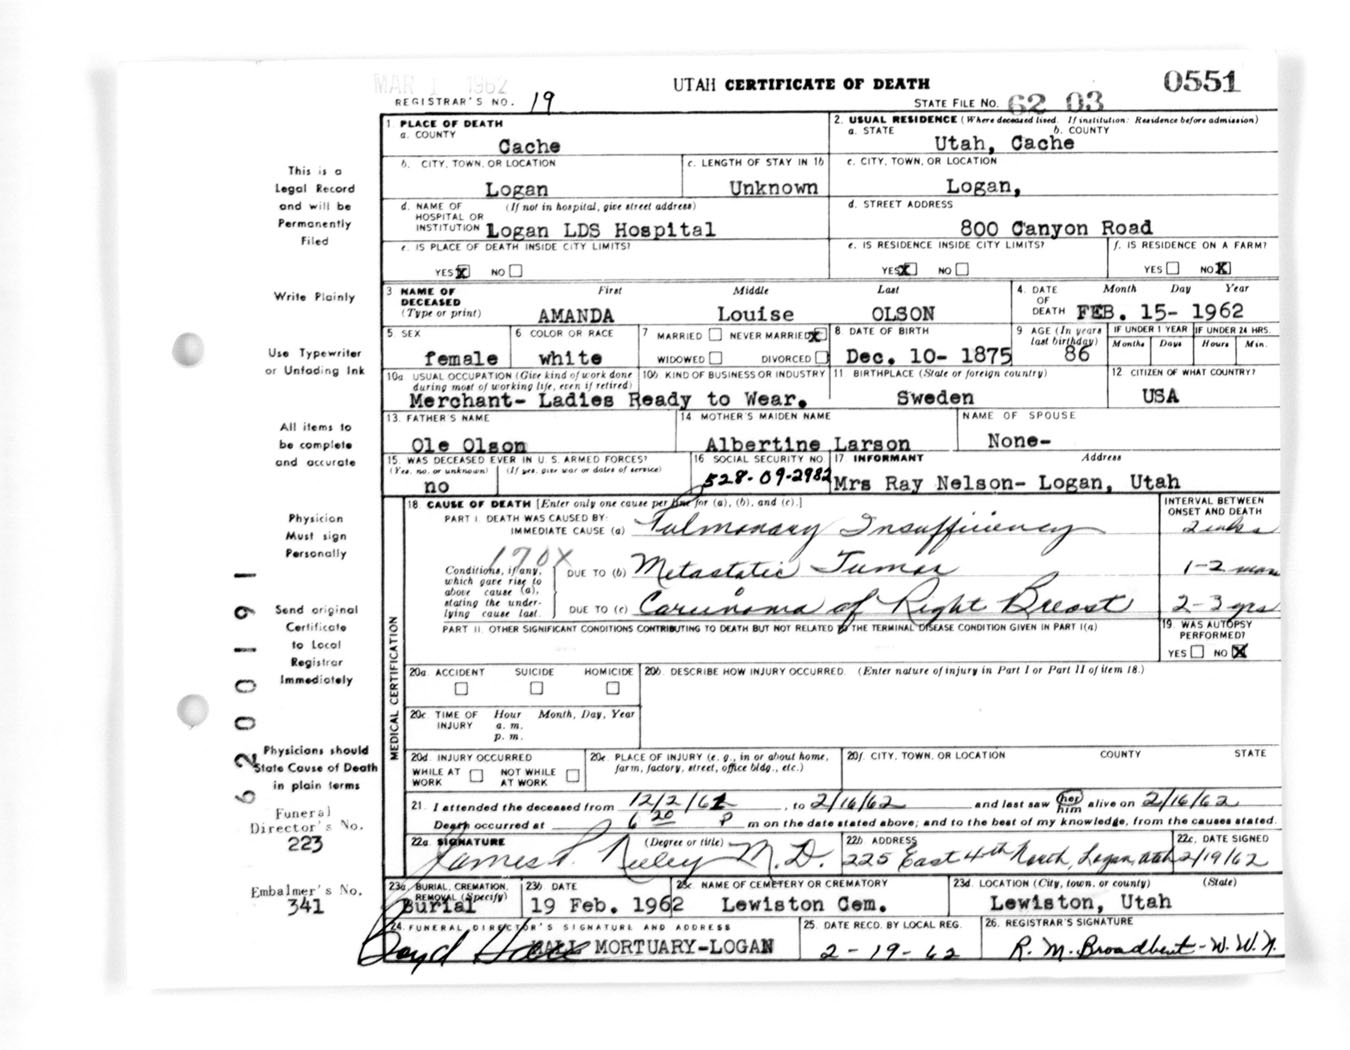 MAR 1 1962
UTAH CERTIFICATE OF DEATH 0551
REGISTRAR'S NO. 19 STATE FILE NO. 62 03
1 PLACE OF DEATH
a. COUNTY
Cache
2. USUAL RESIDENCE (Where deceased lived. If institution: Residence before admission)
a. STATE b. COUNTY
Utah, Cache
b. CITY, TOWN, OR LOCATION
Logan
c. LENGTH OF STAY IN 1b
Unknown
c. CITY, TOWN, OR LOCATION
Logan,
d. NAME OF HOSPITAL OR INSTITUTION (If not in hospital, give street address)
Logan LDS Hospital
d. STREET ADDRESS
800 Canyon Road
e. IS PLACE OF DEATH INSIDE CITY LIMITS?
YES X NO
e. IS RESIDENCE INSIDE CITY LIMITS?
YES X NO
f. IS RESIDENCE ON A FARM?
YES NO X
3 NAME OF DECEASED (Type or print)
First Middle Last
AMANDA Louise OLSON
4. DATE OF DEATH Month Day Year
FEB. 15- 1962
5 SEX
female
6 COLOR OR RACE
white
7 MARRIED NEVER MARRIED X
WIDOWED DIVORCED
8 DATE OF BIRTH
Dec. 10- 1875
9 AGE (In years last birthday)
86
IF UNDER 1 YEAR IF UNDER 24 HRS.
Months Days Hours Min.
10a USUAL OCCUPATION (Give kind of work done during most of working life, even if retired)
10b KIND OF BUSINESS OR INDUSTRY
Merchant- Ladies Ready to Wear.
11 BIRTHPLACE (State or foreign country)
Sweden
12 CITIZEN OF WHAT COUNTRY?
USA
13. FATHER'S NAME
Ole Olson
14 MOTHER'S MAIDEN NAME
Albertine Larson
NAME OF SPOUSE
None-
15. WAS DECEASED EVER IN U.S. ARMED FORCES?
(Yes, no, or unknown) (If yes, give war or dates of service)
no
16 SOCIAL SECURITY NO
528-09-2982
17 INFORMANT Address
Mrs Ray Nelson- Logan, Utah
18 CAUSE OF DEATH [Enter only one cause per line for (a), (b), and (c).]
INTERVAL BETWEEN ONSET AND DEATH
PART I. DEATH WAS CAUSED BY:
IMMEDIATE CAUSE (a) Pulmonary Insufficiency 2 wks
170X
Conditions, if any, which gave rise to above cause (a), stating the underlying cause last.
DUE TO (b) Metastatic Tumor 1-2 mos
DUE TO (c) Carcinoma of Right Breast 2-3 yrs
PART II. OTHER SIGNIFICANT CONDITIONS CONTRIBUTING TO DEATH BUT NOT RELATED TO THE TERMINAL DISEASE CONDITION GIVEN IN PART I(a)
19. WAS AUTOPSY PERFORMED?
YES NO X
MEDICAL CERTIFICATION
20a. ACCIDENT SUICIDE HOMICIDE
20b. DESCRIBE HOW INJURY OCCURRED. (Enter nature of injury in Part I or Part II of item 18.)
20c TIME OF INJURY Hour Month, Day, Year
a. m.
p. m.
20d. INJURY OCCURRED
WHILE AT WORK NOT WHILE AT WORK
20e. PLACE OF INJURY (e. g., in or about home, farm, factory, street, office bldg., etc.)
20f. CITY, TOWN, OR LOCATION COUNTY STATE
21. I attended the deceased from 12/2/61, to 2/16/62 and last saw her him alive on 2/16/62
Death occurred at 6 20 P m on the date stated above; and to the best of my knowledge, from the causes stated.
22a. SIGNATURE (Degree or title)
James P. Neeley M.D.
22b ADDRESS
225 East 4th North, Logan, Utah
22c. DATE SIGNED
2/19/62
23a. BURIAL, CREMATION, REMOVAL (Specify)
Burial
23b DATE
19 Feb. 1962
23c NAME OF CEMETERY OR CREMATORY
Lewiston Cem.
23d. LOCATION (City, town, or county) (State)
Lewiston, Utah
24. FUNERAL DIRECTOR'S SIGNATURE AND ADDRESS
Boyd Hall HALL MORTUARY-LOGAN
25. DATE RECD. BY LOCAL REG.
2-19-62
26. REGISTRAR'S SIGNATURE
R. M. Broadbent - W. W. N.
This is a
Legal Record
and will be
Permanently
Filed
Write Plainly
Use Typewriter
or Unfading Ink
All items to
be complete
and accurate
Physician
Must sign
Personally
Send original
Certificate
to Local
Registrar
Immediately
Physicians should
State Cause of Death
in plain terms
Funeral
Director's No.
223
Embalmer's No.
341
6200191